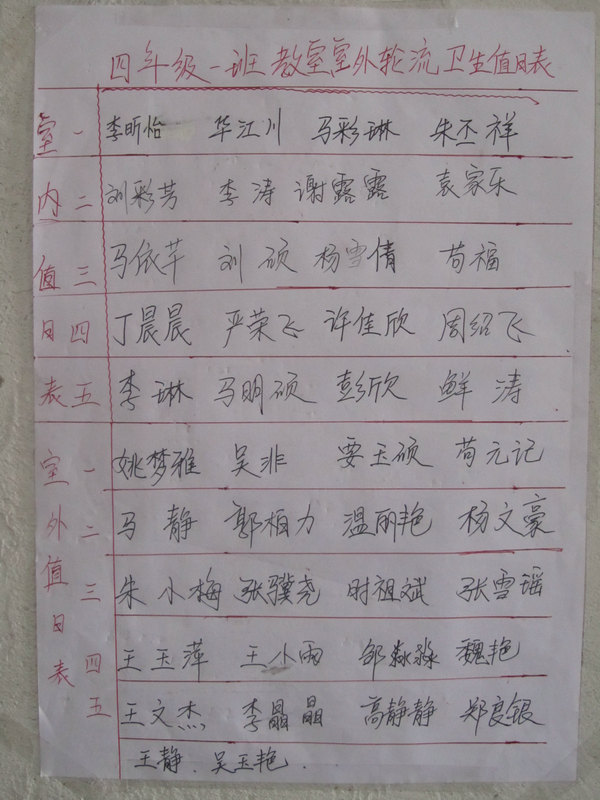 四年级一班教室室外轮流卫生值日表
室内值日表
一 李昕怡 华江川 马彩琳 朱丕祥
二 刘彩芳 李涛 谢露露 袁家乐
三 马依芊 刘硕 杨雪倩 苟福
四 丁晨晨 严荣飞 许佳欣 周绍飞
五 李琳 马明硕 彭欣 鲜涛
室外值日表
一 姚梦雅 吴非 要玉硕 苟元记
二 马静 郭柏力 温丽艳 杨文豪
三 朱小梅 张骥尧 时祖斌 张雪瑶
四 王玉萍 王小雨 邹淼淼 魏艳
五 王文杰 李晶晶 高静静 郑良银
王静 吴玉艳.